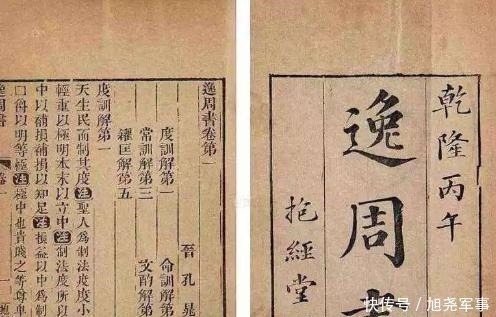 乾隆丙午
逸周
抱經堂
逸周書卷第一
晉 孔晁
度訓解第一 命訓解第
常訓解第三 文酌解第
糴匡解第五
度訓解第一
天生民而制其度注聖人爲制法度度小
輕重以極明本末以立中注制法度所以
中以補損補損以知足注損益以中爲制
□爵以明等極注極中也貴賤之等尊卑
逸周書 卷一
快传号 / 旭尧军事